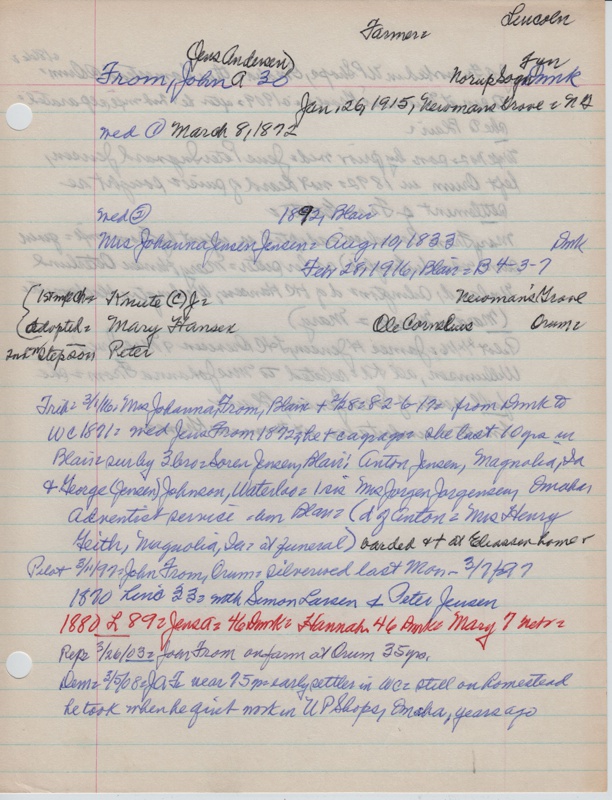 Lincoln
Farmer=
(Jens Andersen) Fyn
From, John A 30 Norup Sogn Dmk
Jan, 26, 1915, Newmans Grove = NG
wed ① March 8, 1872
wed ② 1892, Blair
Mrs Johanna Jensen Jensen = Aug, 10, 1833 Dmk
Feb, 28, 1916, Blair = B 4-3-7
Knute (C) Jr = Newman's Grove
adopted = Mary Hansen Ole Cornelius Orum =
2nd m Stepson Peter
Trib = 3/1/16 = Mrs Johanna From, Blair + 2/28 = 82-6-17 = from Dmk to
WC 1871 = wed Jens From 1872 he + yrs ago = she last 10 yrs in
Blair = surv by 3 bro = Soren Jensen, Blair; Anton Jensen, Magnolia, Ia
& George (Jensen) Johnson, Waterloo = 1 sis Mrs Jorgen Jorgensen, Omaha =
Adventist service - bur Blair = (d of Anton = Mrs Henry
Keith, Magnolia, Ia = at funeral) boarded + at Eliassen home
Pilot 3/11/97 = John From, Orum = silverwed last Mon - 3/7/97
1870 Linc 33 = with Simon Larsen & Peter Jensen
1880 L 89 = Jens A = 46 Dmk = Hannah 46 Dmk = Mary 7 Nebr =
Rep = 3/26/03 = John From on farm at Orum 35 yrs.
Dem = 3/5/08 = JA Fr near 75 = early settler in WC = still on homestead
he took when he quit work in UP Shops, Omaha, years ago